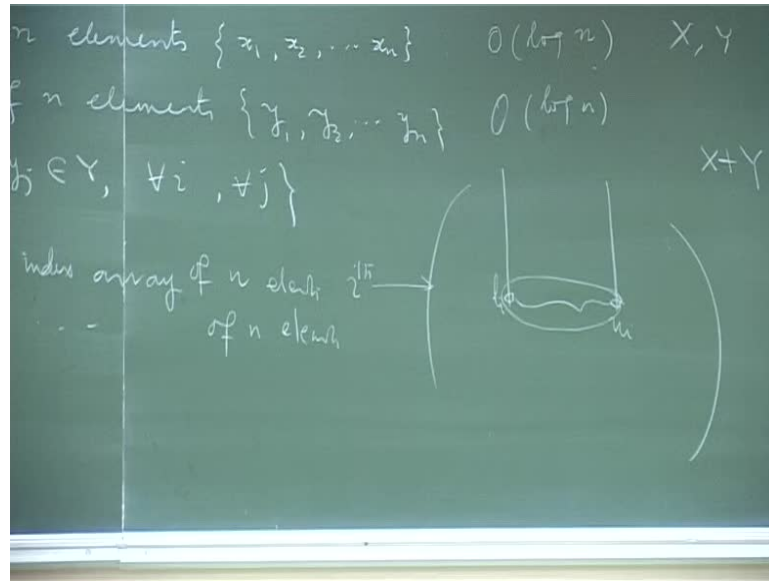 n elements { x₁, x₂, ... xₙ } O(log n) X, Y
f n elements { y₁, y₂, ... yₙ } O(log n)
yⱼ ∈ Y, ∀i, ∀j } X+Y
index array of n elemts iᵗʰ
... of n elemts